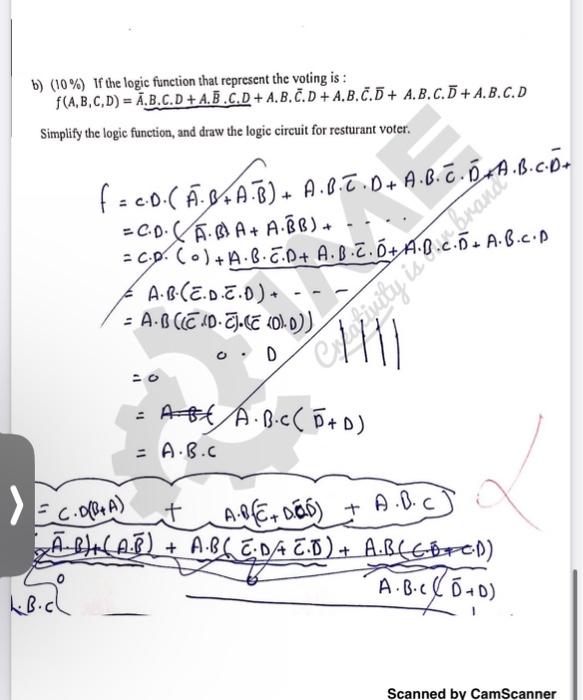 b) (10%) If the logic function that represent the voting is :
f(A,B,C,D) = A̅.B.C.D + A.B̅.C.D + A.B.C̅.D + A.B.C̅.D̅ + A.B.C.D̅ + A.B.C.D
Simplify the logic function, and draw the logic circuit for resturant voter.
f = C.D.( A̅.B + A.B̅) + A.B.C̅.D + A.B.C̅.D̅ + A.B.C.D̅ +
= C.D.( A̅.B) A + A.B̅ B) + - - - -
= C.D. (0) + A.B.C̅.D + A.B.C̅.D̅ + A.B.C.D̅ + A.B.C.D
= A.B.(C̅.D.C̅.D) + - - -
= A.B
0 . D
= 0
= A.B.C( D̅ + D)
= A.B.C
= C.D(B+A) + A.B( + A.B.C
A̅.B)+(A.B̅) + A.B( C̅.D + C̅.D̅) + A.B(
0
A.B.C( D̅+D)
.B.C
1
IME
Creativity is our brand
Scanned by CamScanner